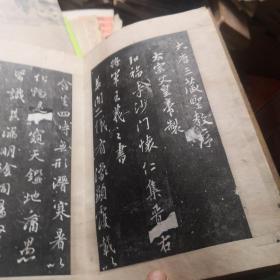 大唐三藏聖教序
太宗文皇帝製
弘福寺沙門懷仁集晉右
將軍王羲之書
蓋聞二儀有像顯覆載以
含生四時無形潛寒暑以
化物是窺天鑑地庸愚
皆識其端明陰洞陽